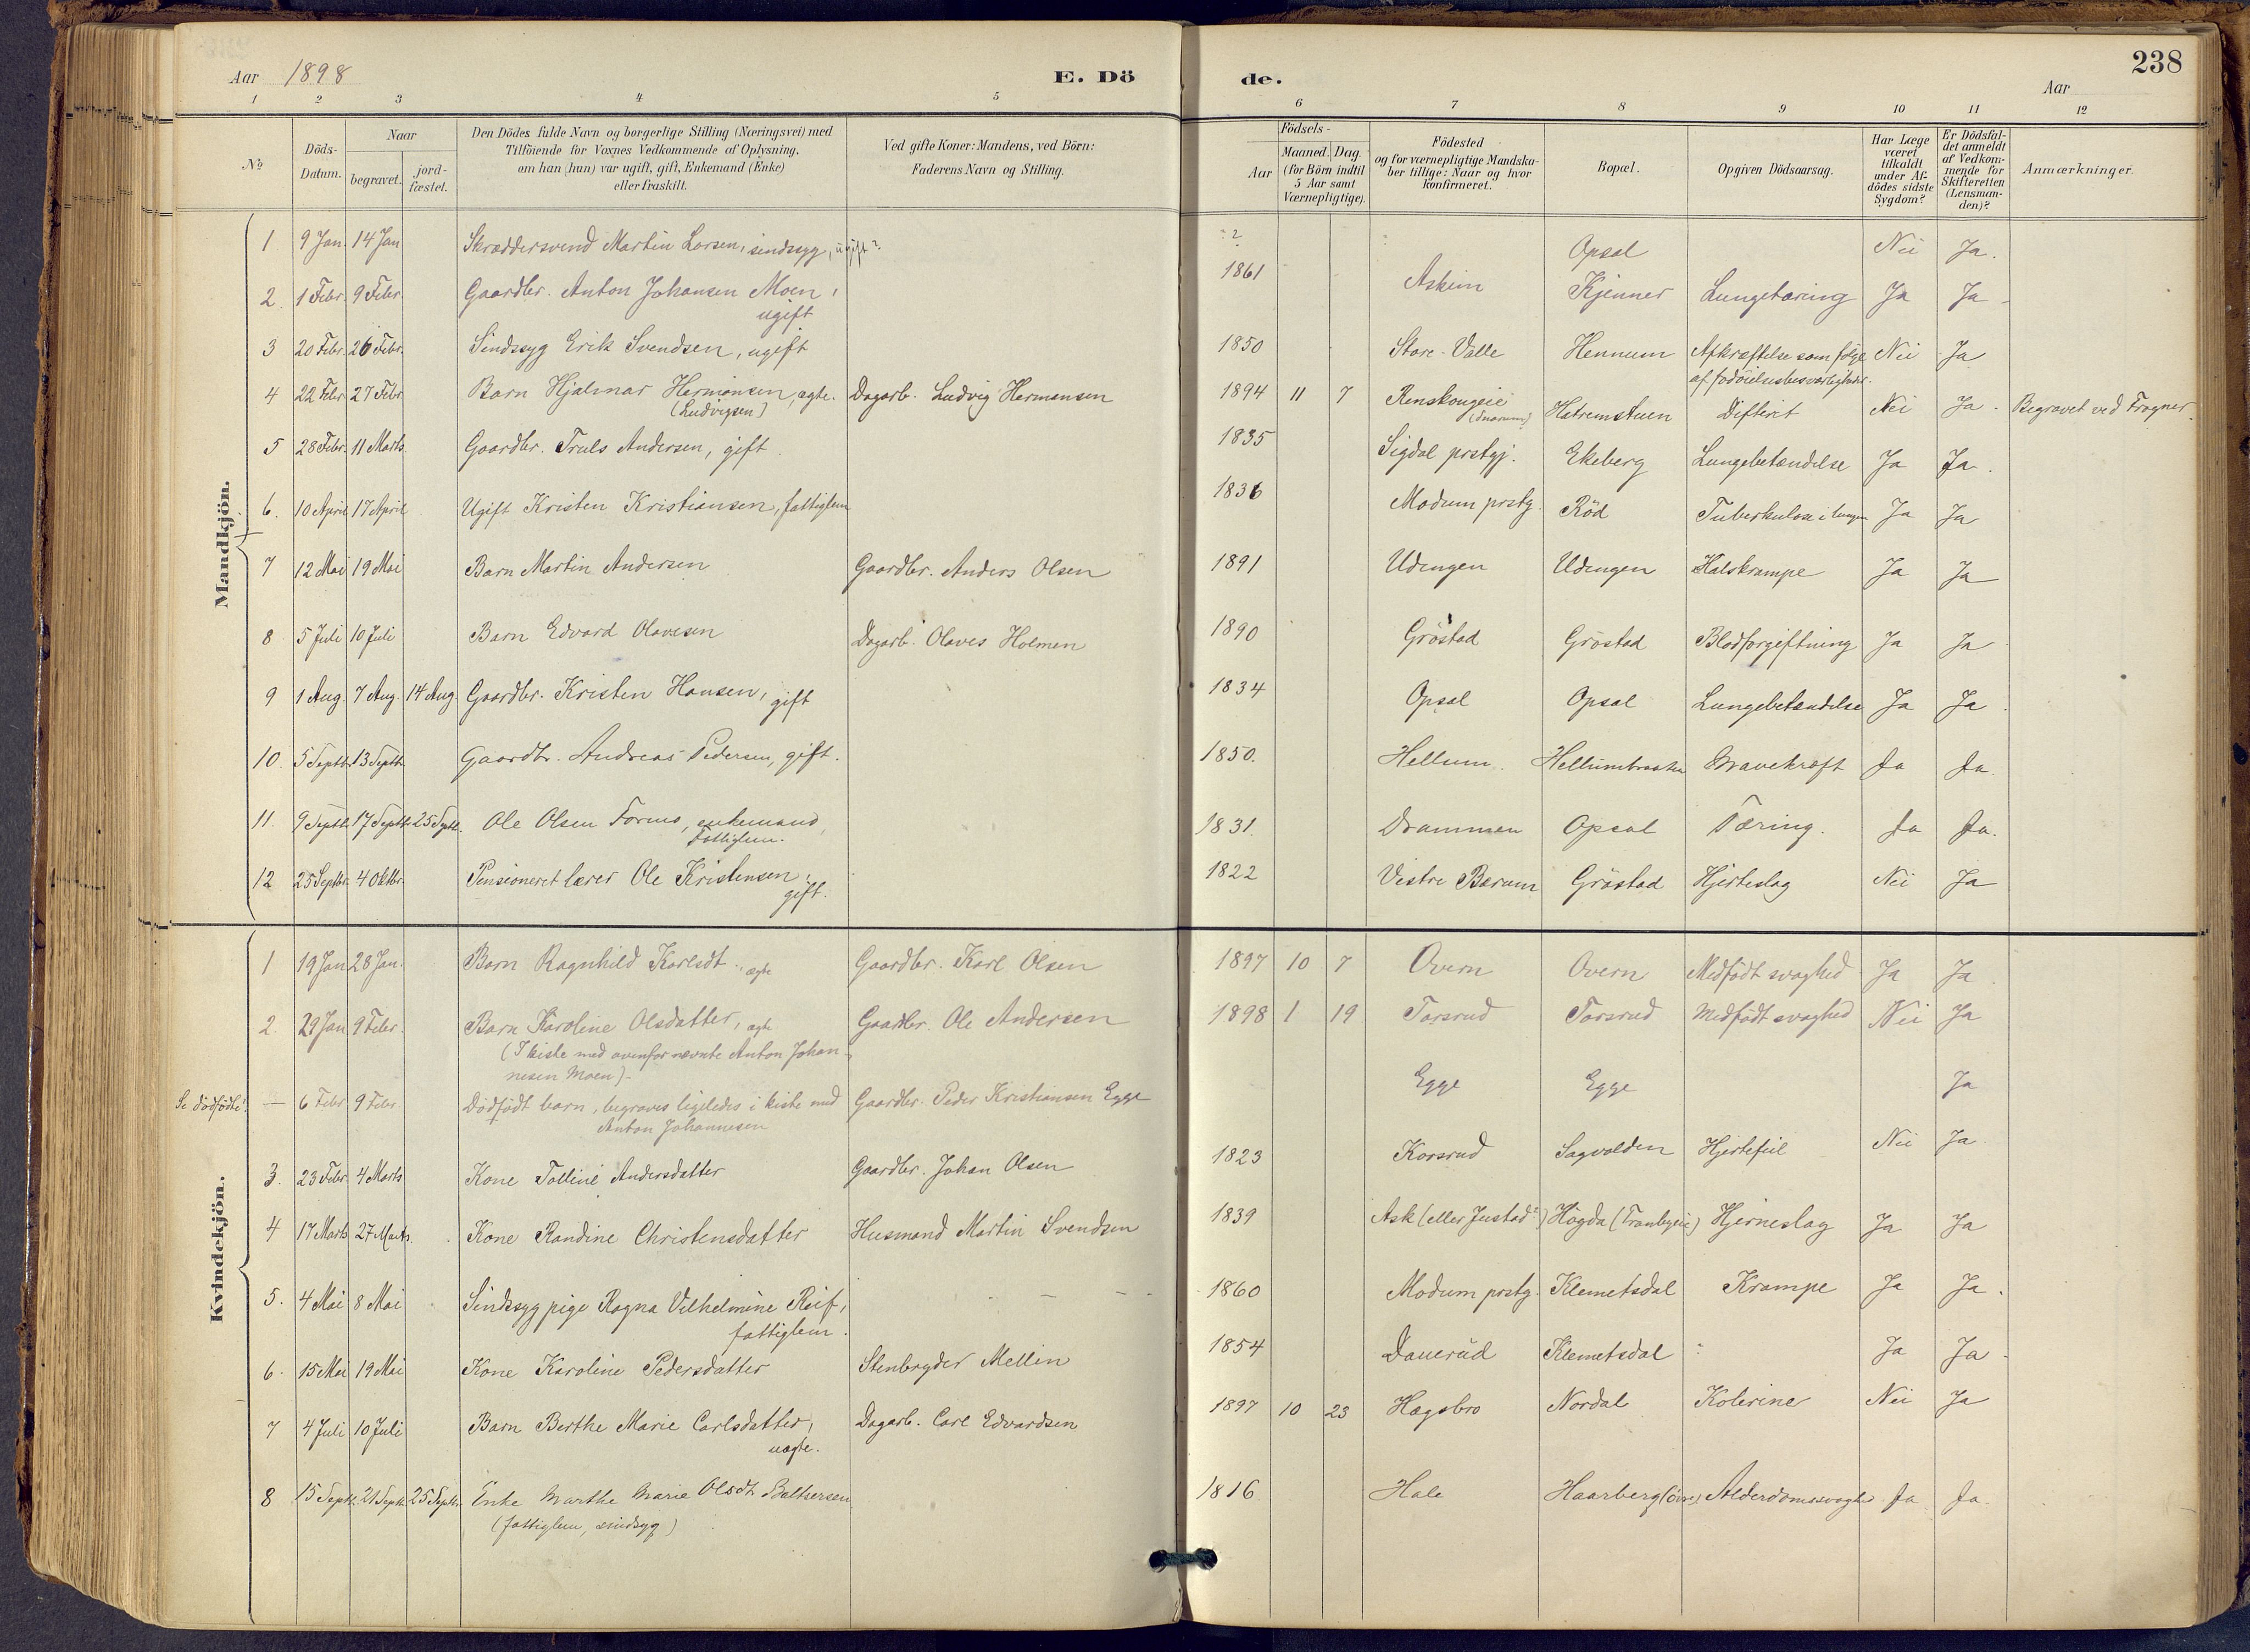 Aar 1898
E. Dö
de.
Aar
238
1 2 3 4 5 6 7 8 9 10 11 12
No
Döds-
Datum.
Naar
begravet.
jord-
fæstet.
Den Dödes fulde Navn og borgerlige Stilling (Næringsvei) med
Tilföiende for Voxnes Vedkommende af Oplysning,
om han (hun) var ugift, gift, Enkemand (Enke)
eller fraskilt.
Ved gifte Koner: Mandens, ved Börn:
Faderens Navn og Stilling.
Födsels-
Aar
Maaned. Dag.
(for Börn indtil
5 Aar samt
Værnepligtige).
Födested
og for værnepligtige Mandska-
ber tillige: Naar og hvor
konfirmeret.
Bopæl.
Opgiven Dödsaarsag.
Har Læge
været
tilkaldt
under Af-
dödes sidste
Sygdom?
Er Dödsfal-
det anmeldt
af Vedkom-
mende for
Skifteretten
(Lensman-
den)?
Anmærkninger.
Mandkjön.
1 9 Jan. 14 Jan Skræddersvend Martin Larsen, sindssyg, ugift? ? Opsal Nei Ja.
2. 1 Febr. 9 Febr. Gaardbr. Anton Johansen Moen, 1861 Askim Kjenner Lungetæring Ja Ja
ugift
3 20 Febr. 26 Febr. Sindssyg Erik Svendsen, ugift 1850 Store-Valle Hennum Afkræftelse som følge Nei Ja
af fødöielsesbesværligheder.
4 22 Febr. 27 Febr. Barn Hjalmar Hermansen, ægte. Dagarb. Ludvig Hermansen 1894 11 7 Renskougeie Hatremstuen Difterit Nei Ja. Begravet ved Frogner.
(Ludvigsen) (Snarum)
5 28 Febr. 11 Marts Gaardbr. Truls Andersen, gift 1835 Sigdal prstgj. Ekeberg Lungebetændelse Ja Ja.
6. 10 April 17 April Ugift Kristen Kristiansen, fattiglem 1836 Modum prstg. Röd Tuberkulose i lungen Ja Ja
7 12 Mai 19 Mai Barn Martin Andersen Gaardbr. Anders Olsen 1891 Udengen Udengen Halskrampe Ja Ja
8 5 Juli 10 Juli Barn Edvard Olavesen Dagarb. Olaves Holmen 1890 Gröstad Gröstad Blodforgiftning Ja Ja
9 1 Aug. 7 Aug. 14 Aug. Gaardbr. Kristen Hansen, gift 1834 Opsal Opsal Lungebetændelse Ja Ja
10. 5 Septb. 13 Septb. Gaardbr. Andreas Pedersen, gift. 1850. Hellum. Hellumbraaten Mavekræft Ja Ja.
11. 9 Septb. 17 Septb. 25 Septb. Ole Olsen Formo, enkemand, 1831. Drammen Opsal Tæring. Ja Ja.
Fattiglem.
12 25 Septbr. 4 Oktbr. Pensioneret lærer Ole Kristensen, 1822 Vestre Bærum Gröstad Hjerteslag Nei Ja
gift.
Kvindekjön.
1 19 Jan 28 Jan. Barn Ragnhild Karlsdt. ægte Gaardbr. Karl Olsen 1897 10 7 Overn Overn Medfödt svaghed Ja Ja
2. 29 Jan 9 Febr. Barn Karoline Olsdatter, ægte Gaardbr. Ole Andersen 1898 1 19 Torsrud Torsrud Medfödt svaghed Nei Ja
(I kiste med ovenfor nævnte Anton Johan-
nesen Moen).
Se dödfödte! — 6 Febr 9 Febr Dödfödt barn, begraves ligeledes i kiste med Gaardbr. Peder Kristiansen Egge Egge Egge Ja
Anton Johannesen
3. 23 Febr. 4 Marts Kone Tolline Andersdatter Gaardbr. Johan Olsen 1823 Korsrud Sagvolden Hjertefeil Nei Ja
4 17 Marts 27 Marts. Kone Randine Christensdatter Husmand Martin Svendsen 1839 Ask (eller Justad?) Högda (Tranbyeie) Hjerneslag Ja Ja
5. 4 Mai 8 Mai Sindssyg pige Ragna Vilhelmine Reif, 1860 Modum prstg. Klemetsdal Krampe Ja Ja.
fattiglem.
6. 15 Mai 19 Mai Kone Karoline Pedersdatter Stenbryder Mellin 1854 Dauerud Klemetsdal Ja Ja
7 4 Juli 10 Juli Barn Berthe Marie Carlsdatter, Dagarb. Carl Edvardsen 1897 10 23 Hagsbro Nordal Kolerine Nei Ja
uægte.
8 15 Septb. 21 Septb. 25 Septb. Enke Marthe Marie Olsdt. Baltsersen 1816 Hale Haarberg (övre) Alderdomssvaghed Ja Ja.
(fattiglem, sindsyg)